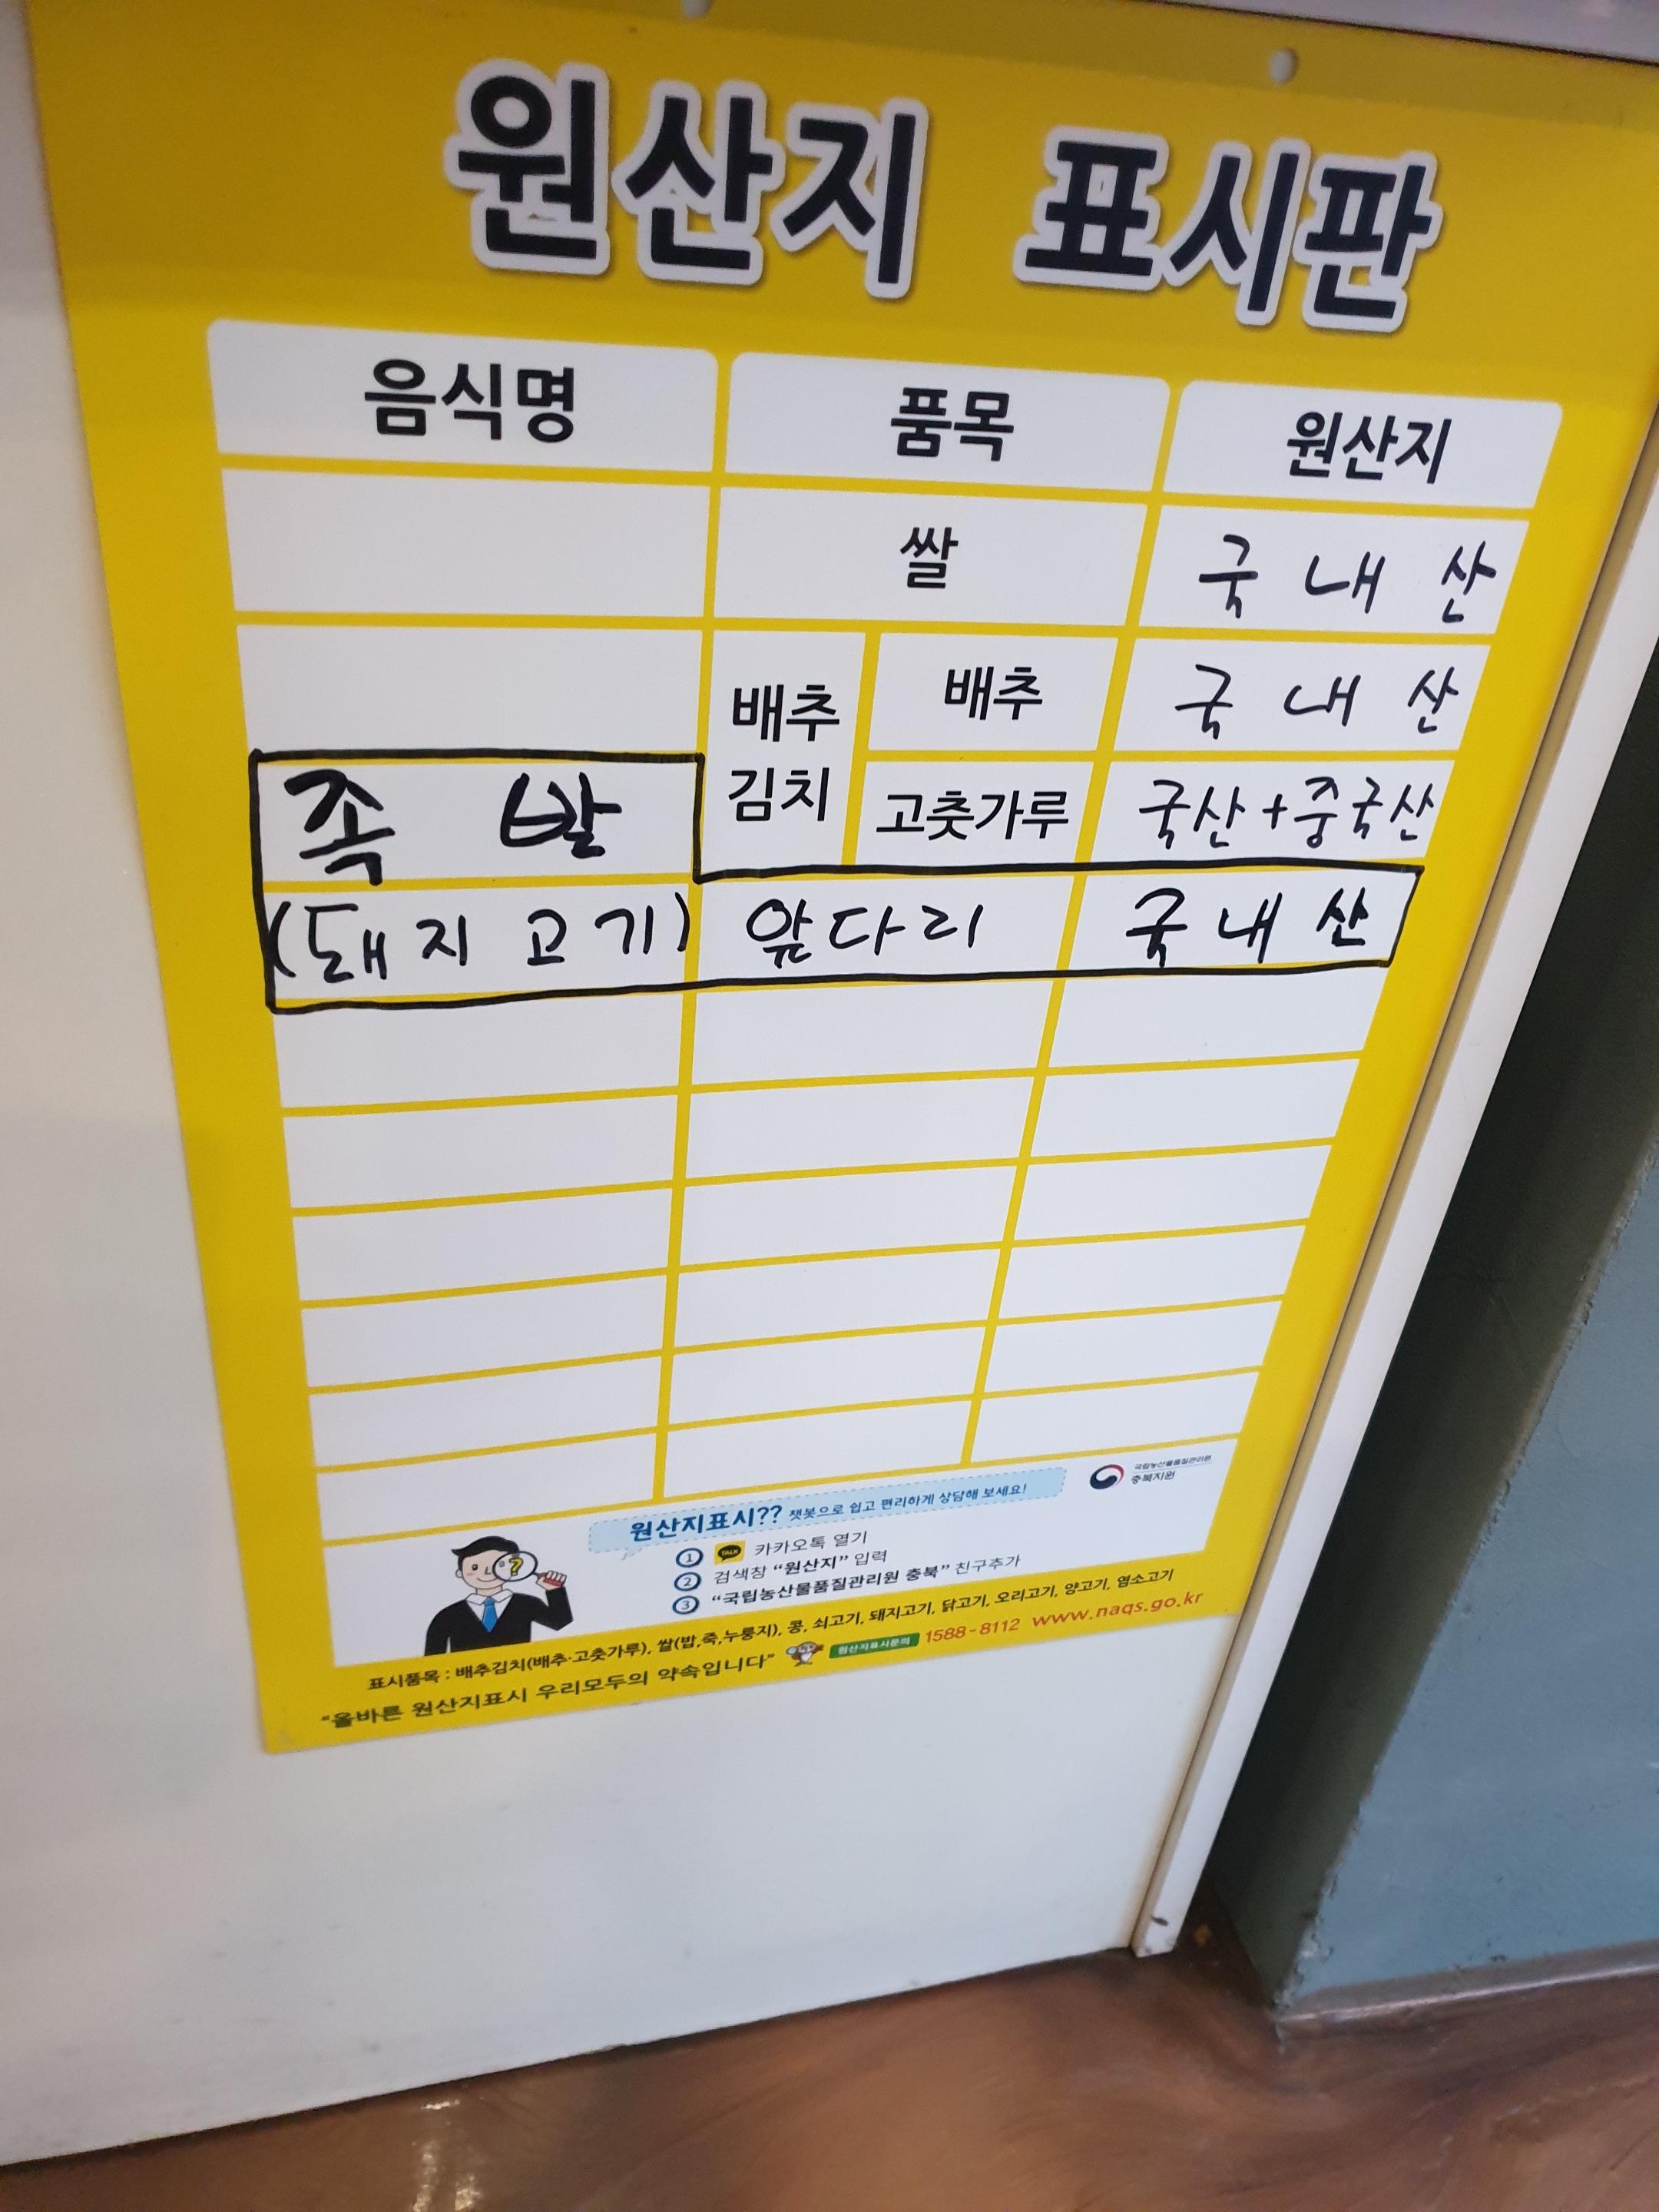 원산지 표시판
음식명 품목 원산지
쌀 국내산
배추김치 배추 국내산
고춧가루 국산+중국산
족발
(돼지고기) 앞다리 국내산
국립농산물품질관리원
충북지원
원산지표시?? 챗봇으로 쉽고 편리하게 상담해 보세요!
1 TALK 카카오톡 열기
2 검색창 "원산지" 입력
3 "국립농산물품질관리원 충북" 친구추가
표시품목 : 배추김치(배추·고춧가루), 쌀(밥,죽,누룽지), 콩, 쇠고기, 돼지고기, 닭고기, 오리고기, 양고기, 염소고기
"올바른 원산지표시 우리모두의 약속입니다" 원산지표시문의 1588-8112 www.naqs.go.kr